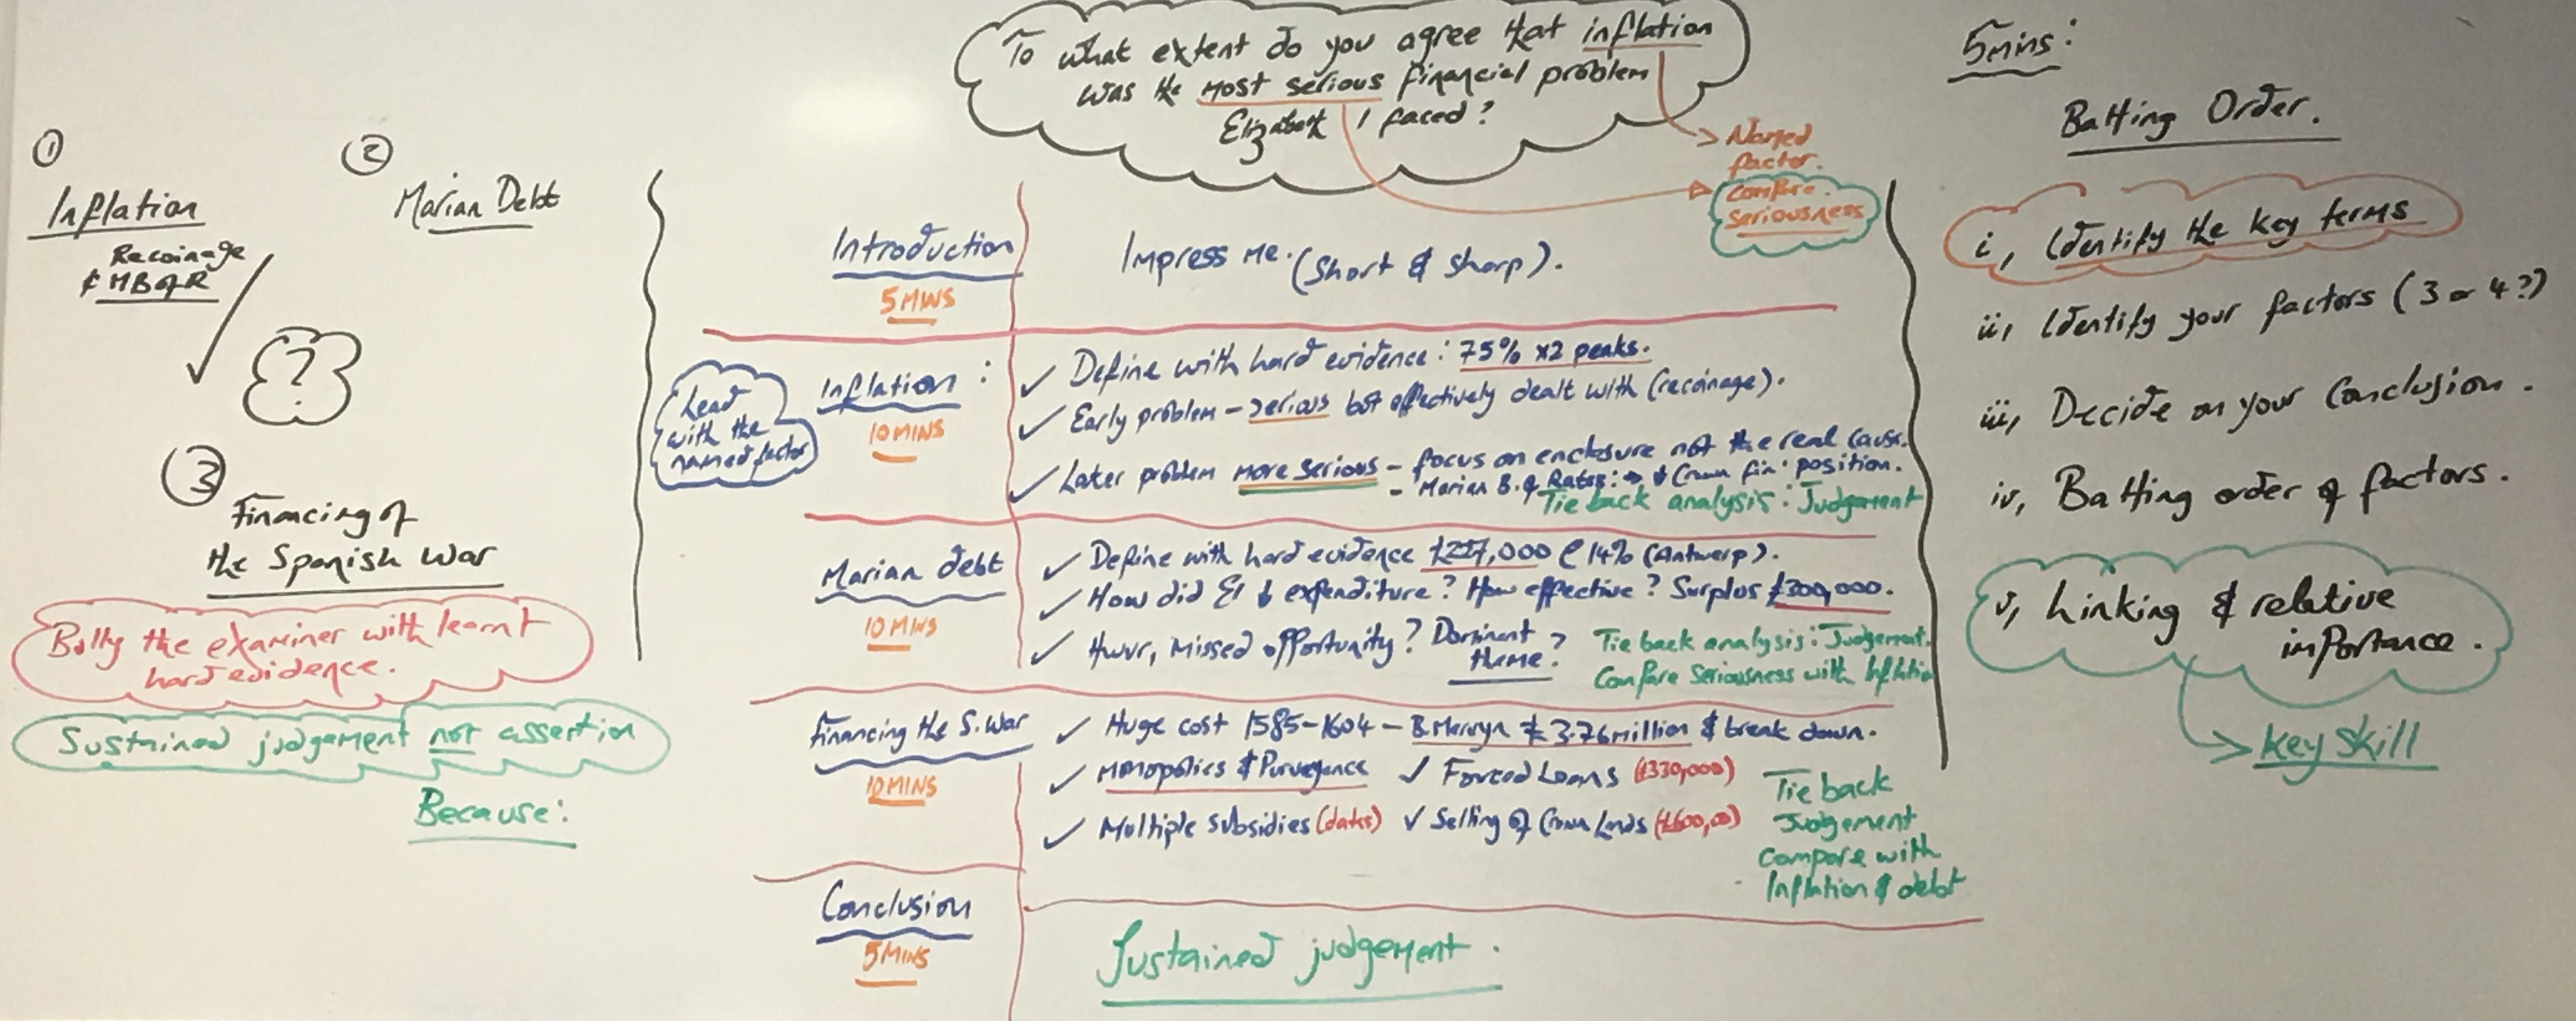 To what extent do you agree that inflation
was the most serious financial problem
Elizabeth I faced?
Named
factor.
Compare
seriousness
①
Inflation
Recoinage
& MB of R
②
Marian Debt
?
③
Financing of
the Spanish War
Bully the examiner with learnt
hard evidence.
Sustained judgement not assertion
Because:
Introduction
5 MINS
Impress me. (Short & Sharp).
Lead
with the
named factor
Inflation :
10 MINS
✓ Define with hard evidence : 75% x2 peaks.
✓ Early problem – serious but effectively dealt with (recoinage).
✓ Later problem more serious – focus on enclosure not the real cause.
– Marian B. of Rates : → ↓ Crown fin' position.
Tie back analysis : Judgement
Marian debt
10 MINS
✓ Define with hard evidence £227,000 @ 14% (Antwerp).
✓ How did E1 ↓ expenditure? How effective? Surplus £300,000.
✓ Hwvr, missed opportunity? Dominant
theme?
Tie back analysis : Judgement.
Compare Seriousness with Inflation
Financing the S. War
10 MINS
✓ Huge cost 1585-1604 – B. Mervyn £3.76 million & break down.
✓ Monopolies & Purveyance ✓ Forced Loans (£330,000)
✓ Multiple subsidies (dates) ✓ Selling of Crown Lands (£600,00)
Tie back
Judgement
compare with
Inflation & debt
Conclusion
5 MINS
Sustained judgement.
5mins:
Batting Order.
i, Identify the key terms
ii, Identify your factors (3 or 4?)
iii, Decide on your Conclusion.
iv, Batting order of factors.
v, Linking & relative
importance.
Key Skill